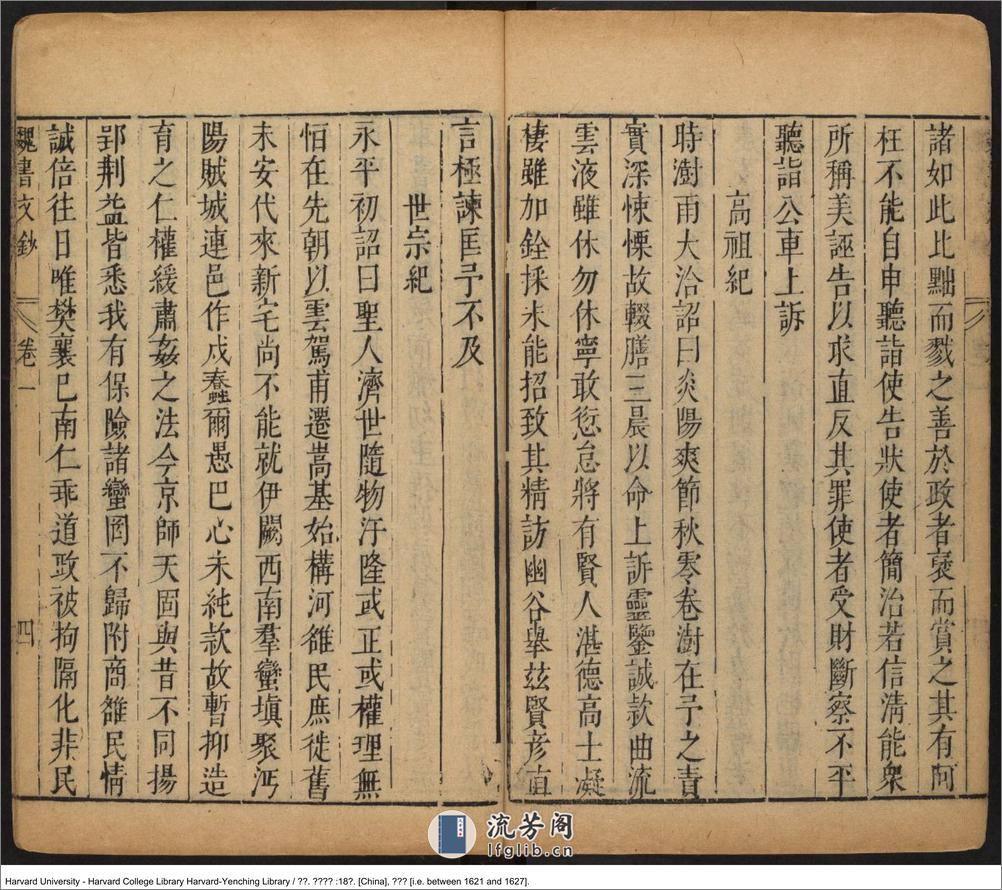 諸如此比黜而戮之善於政者褒而賞之其有阿
枉不能自申聽詣使告狀使者簡治若信清能衆
所稱美誣告以求直反其罪使者受財斷察不平
聽詣公車上訴
高祖紀
時澍雨大洽詔曰炎陽爽節秋零卷澍在予之責
實深悚慄故輟膳三晨以命上訴靈鑒誠款曲流
雲液雖休勿休寧敢愆怠將有賢人湛德高士凝
棲雖加銓採未能招致其精訪幽谷舉茲賢彦直
言極諫匡予不及
世宗紀
永平初詔曰聖人濟世隨物汙隆或正或權理無
恒在先朝以雲駕甫遷嵩基始構河雒民庶徙舊
未安代來新宅尚不能就伊闕西南羣蠻塡聚沔
陽賊城連邑作戍蠢爾愚巴心未純款故暫抑造
育之仁權緩肅姦之法今京師天固與昔不同揚
郢荆益皆悉我有保險諸蠻罔不歸附商雒民情
誠倍往日唯樊襄巳南仁乖道政被拘隔化非民
魏書文鈔 卷一 四
流芳阁
lfglib.cn
Harvard University - Harvard College Library Harvard-Yenching Library / ??. ???? :18?. [China], ??? [i.e. between 1621 and 1627].